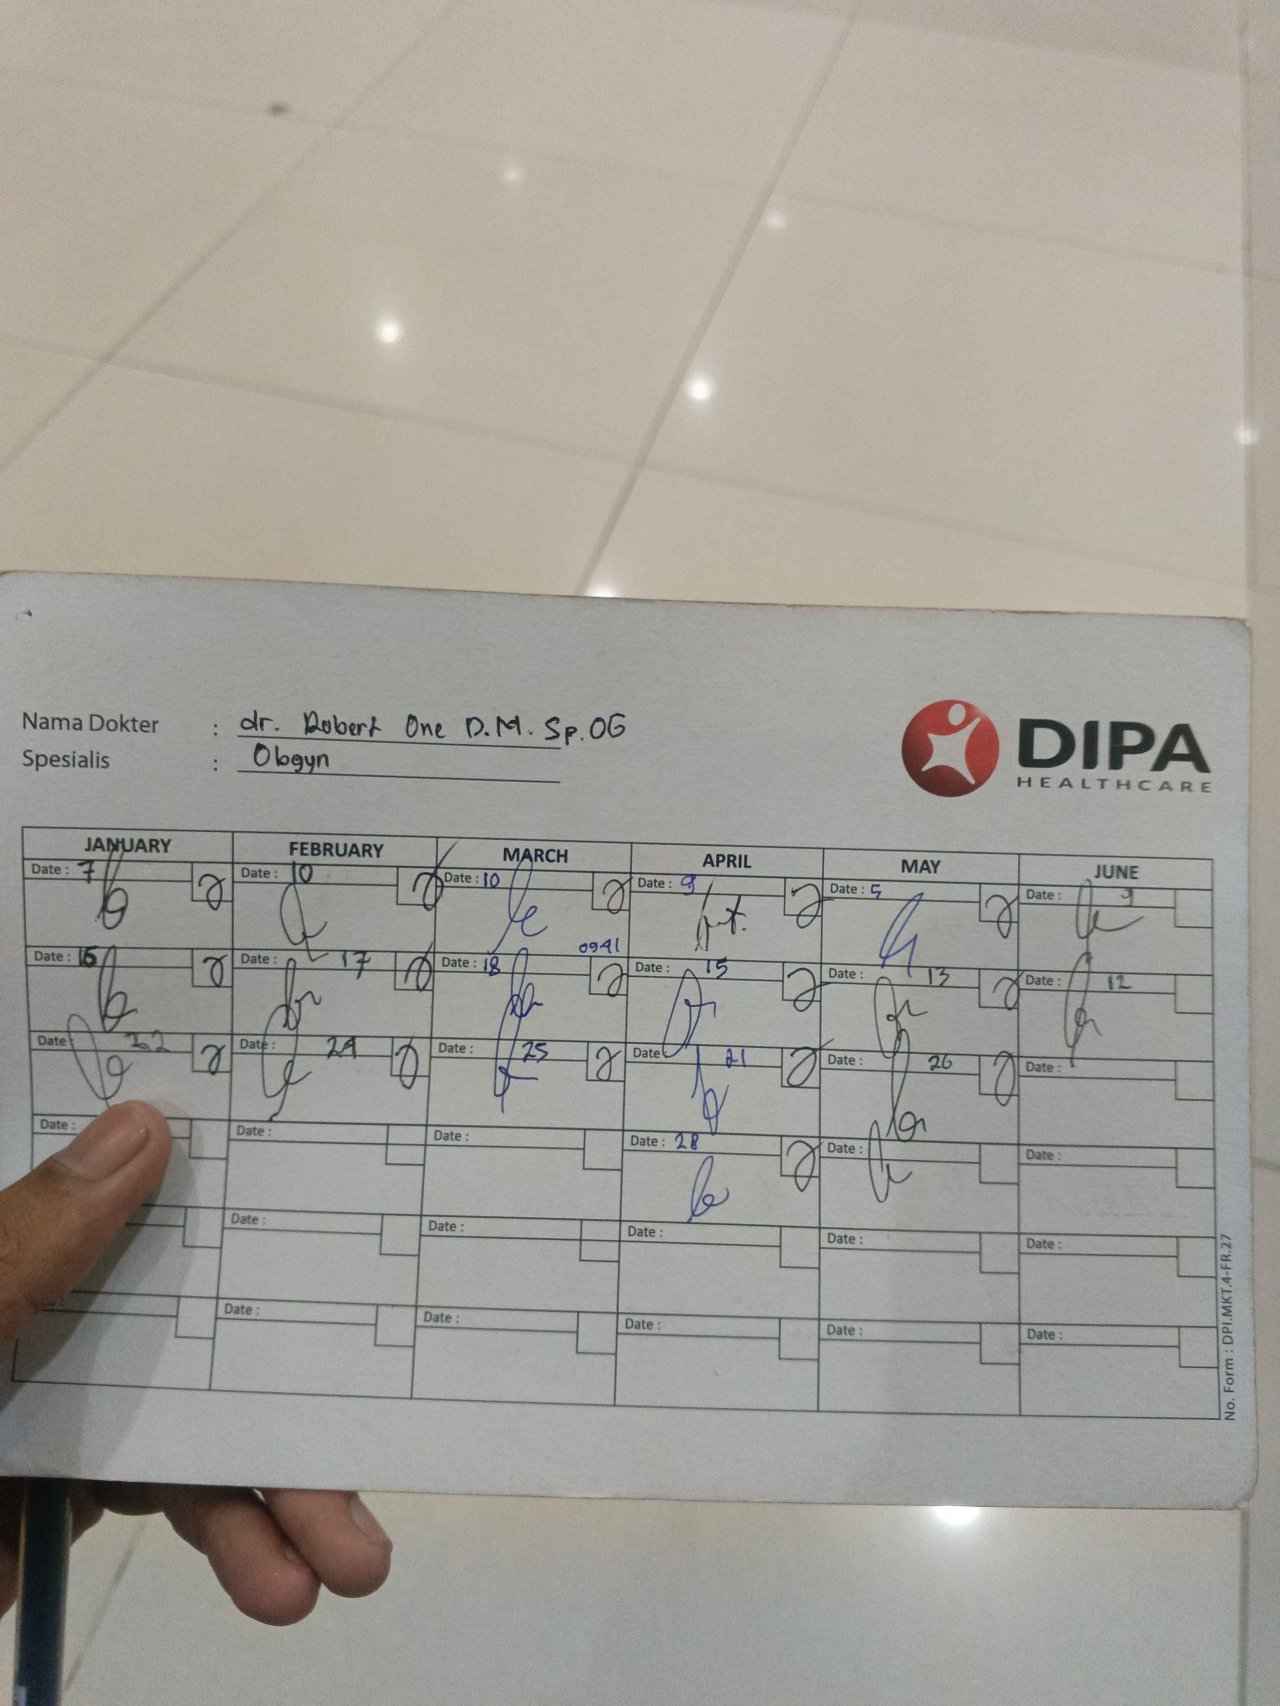 Nama Dokter : dr. Robert One D.M. Sp.OG
Spesialis : Obgyn
DIPA
HEALTHCARE
JANUARY FEBRUARY MARCH APRIL MAY JUNE
Date : 7 Date : 10 Date : 10 Date : 9 Date : 5 Date : 9
0941
Date : 15 Date : 17 Date : 18 Date : 15 Date : 13 Date : 12
Date : 22 Date : 24 Date : 25 Date : 21 Date : 26 Date :
Date : Date : Date : Date : 28 Date : Date :
Date : Date : Date : Date : Date :
Date : Date : Date : Date : Date :
No. Form : DPI.MKT.4-FR.27